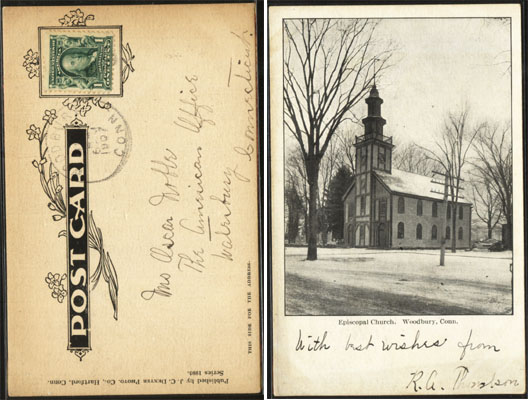 POST CARD
CONN.
1907
Mrs Oscar Noble
The American Office
Waterbury
Connecticut
THIS SIDE FOR THE ADDRESS.
Published by J. C. Dexter Photo. Co., Hartford, Conn.
Series 1001.
Episcopal Church. Woodbury, Conn.
With best wishes from
R. A.